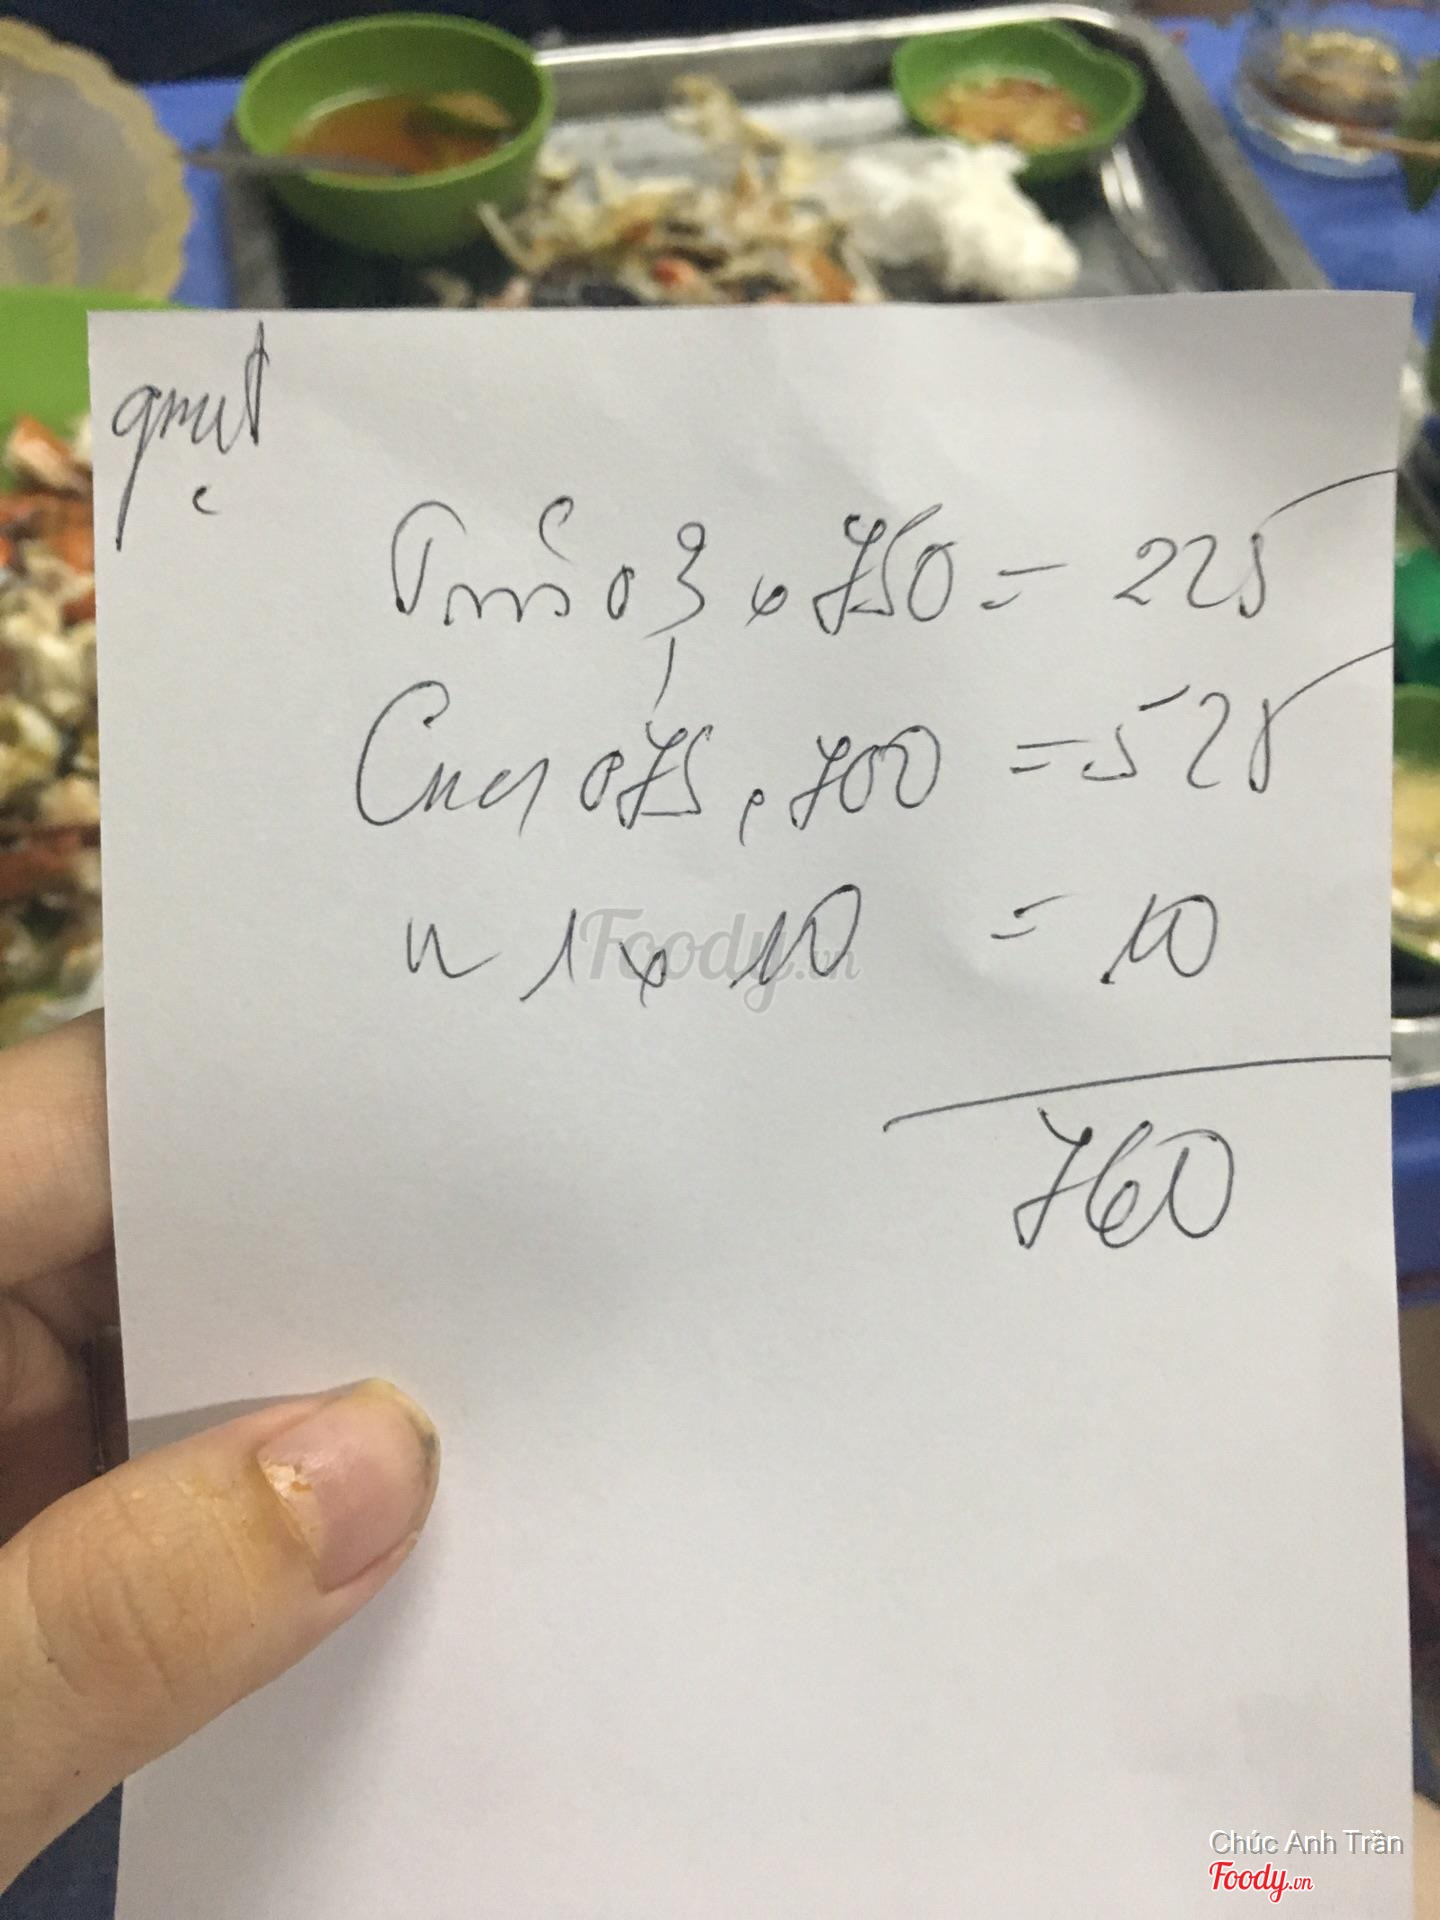 Tôm 03 x 750 = 225
Cua 075 . 700 = 525
n 1 x 10 = 10
760
Foody.vn
Chúc Anh Trần
Foody.vn